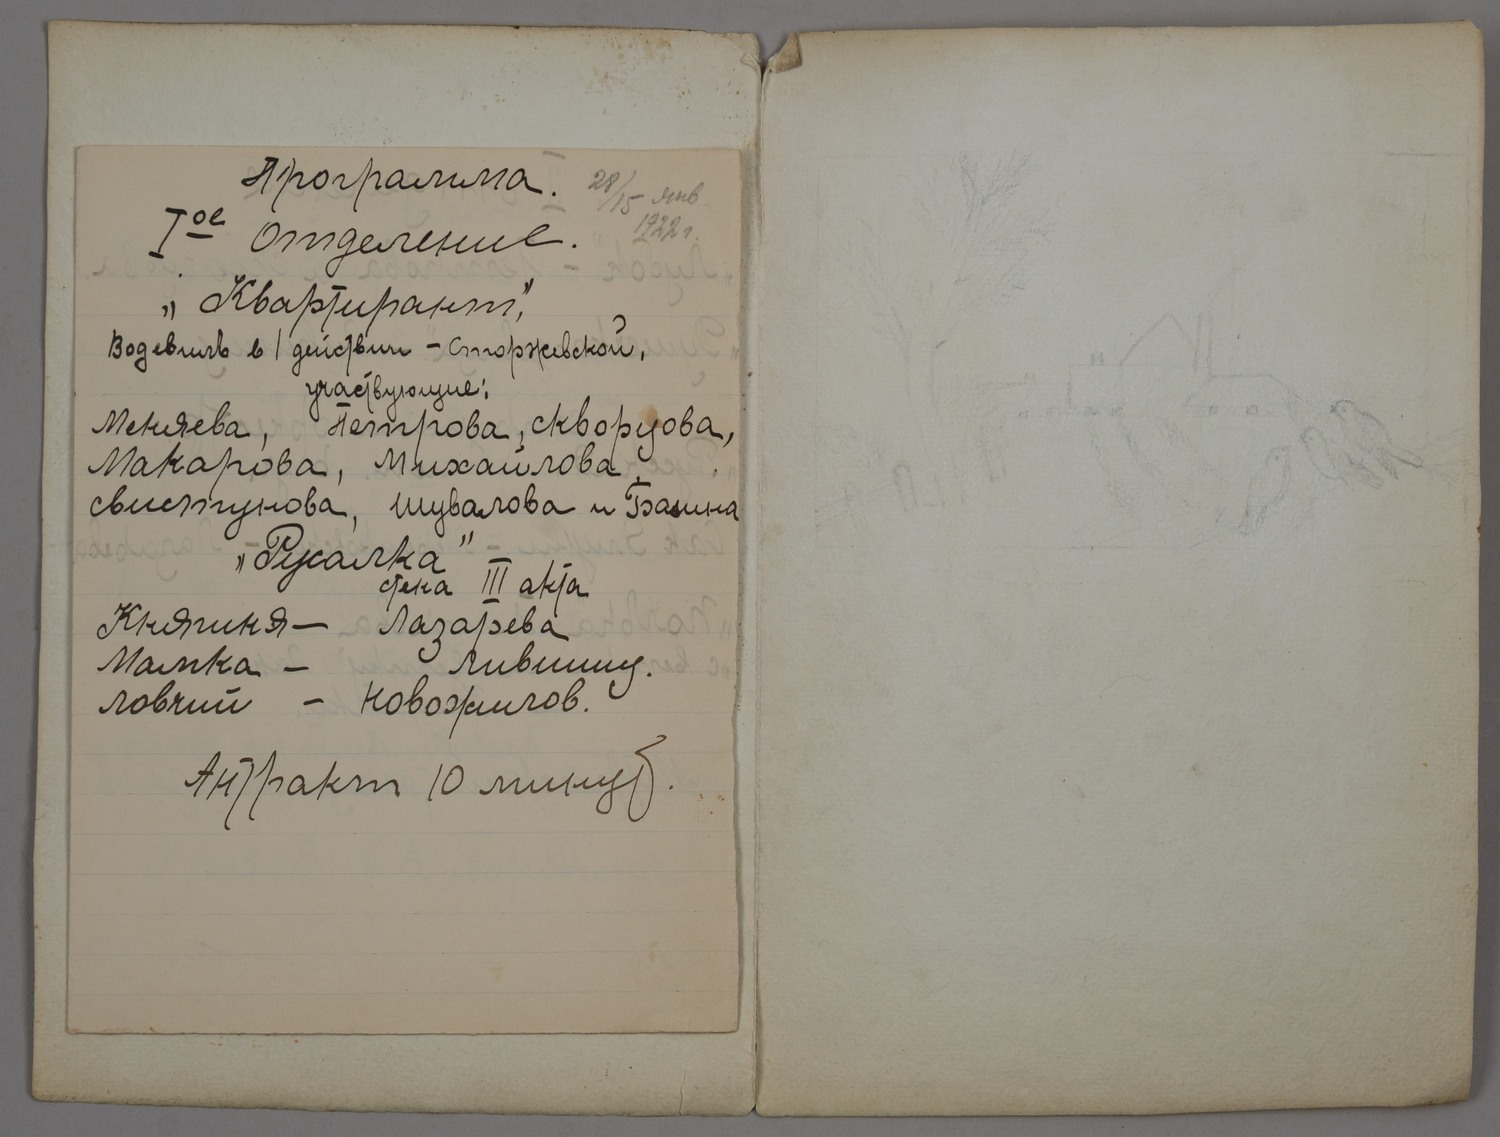 Программа.
28/15 янв
1922 г.
Iое Отделение.
„Квартирант",
Водевиль в 1 действии – Сторжевской,
участвующие:
Меняева, Петрова, Скворцова,
Макарова, Михайлова,
Свистунова, Шувалова и
„Русалка"
сцена III акта
Княгиня – Лазарева
Мамка – Лившиц.
Ловчий – Новожилов.
Антракт 10 минут.